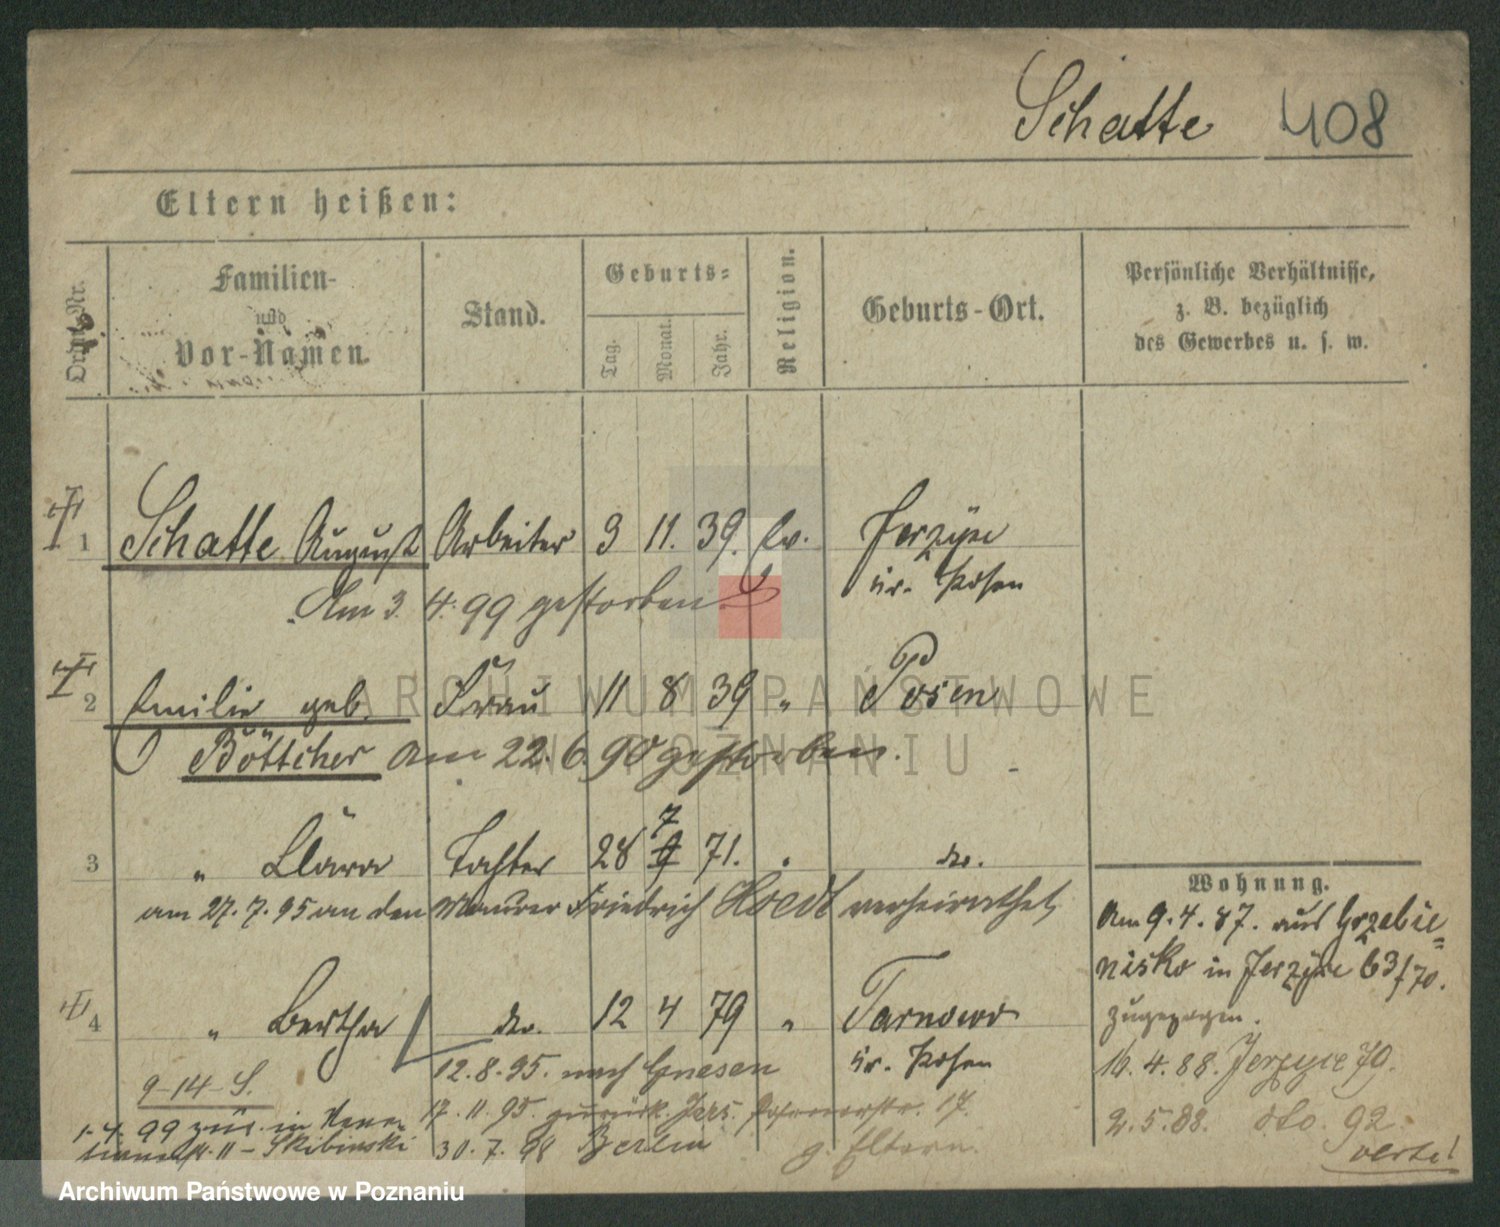 Schatte 408
Eltern heißen:
Ordn. Nr.
Familien-
und
Vor-Namen.
Stand.
Geburts-
Tag.
Monat.
Jahr.
Religion.
Geburts-Ort.
Persönliche Verhältnisse,
z. B. bezüglich
des Gewerbes u. s. w.
1 Schatte August Arbeiter 3 11. 39. Ev. Jerzyce
Kr. Posen
Am 3. 4. 99 gestorben
2 Emilie geb. Frau 11 8 39 " Posen
Böttcher am 22. 6. 90 gestorben.
7
3 " Clara Tochter 28 9 71. " do.
am 27. 7. 95 an den Maurer Friedrich Hoedt verheirathet
4 " Bertha do. 12 4 79 " Tarnowo
Kr. Posen
12. 8. 95. nach Gnesen
9-14 S.
17. 11. 95. zurück. Jers. 17.
1. 4. 99 zur. in
30. 7. 98 Berlin g. Eltern.
11 - Skibinski
Wohnung.
Am 9. 4. 87. aus Grzebie-
nisko in Jerzyce 63/70.
zugezogen.
16. 4. 88. Jerzyce 79.
2. 5. 88. dto. 92.
verte!
ARCHIWUM PAŃSTWOWE
W POZNANIU
Archiwum Państwowe w Poznaniu